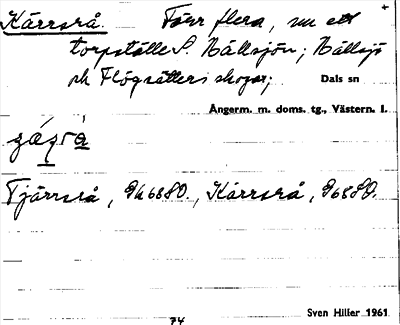 Kärrsrå. Förr flera, nu ett
torpställe S. Hällsjön; Hällsjö
och Flögsätters skogar;
Dals sn
Ångerm. m. doms. tg., Västern. l.
Tjärrsrå, Gk 68 SO., Kärrsrå, G 68 SO.
Sven Hiller 1961
74